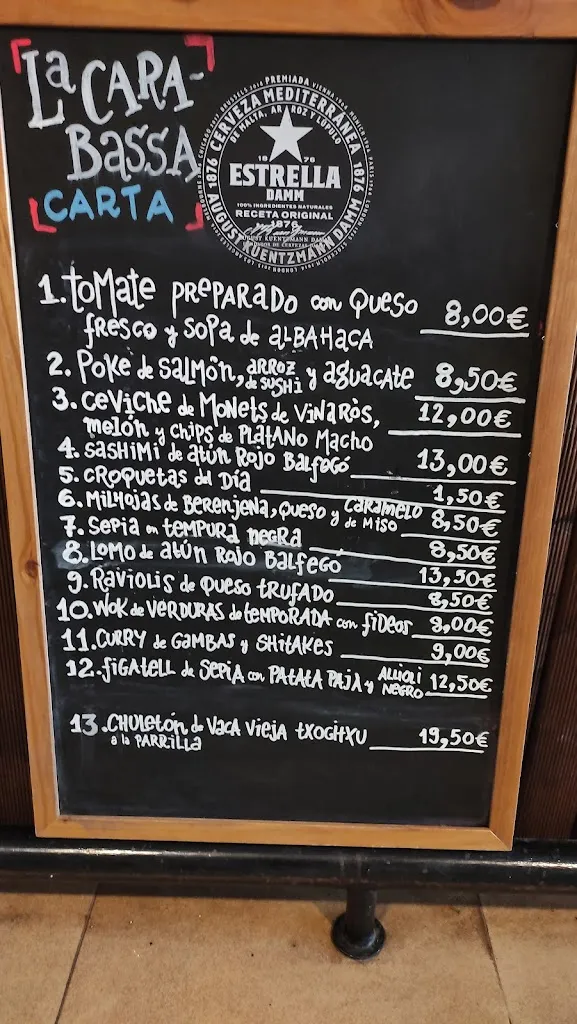 La CARA-
BASSA
CARTA
PREMIADA
CERVEZA MEDITERRÁNEA
DE MALTA, ARROZ Y LÚPULO
1876
1876
1876
ESTRELLA
DAMM
100% INGREDIENTES NATURALES
RECETA ORIGINAL
1876
AUGUST KUENTZMANN DAMM
1. tomate preparado con queso 8,00€
fresco y sopa de albahaca
2. Poke de salmón, arroz de sushi y aguacate 8,50€
3. ceviche de Monets de Vinaròs, 12,00€
melón y chips de plátano macho
4. sashimi de atún rojo Balfegó 13,00€
5. croquetas del día 1,50€
6. Milhojas de berenjena, queso y caramelo de miso 8,50€
7. sepia en tempura negra 8,50€
8. Lomo de atún rojo Balfegó 13,50€
9. Raviolis de queso trufado 8,50€
10. Wok de verduras de temporada con fideos 9,00€
11. curry de gambas y shitakes 9,00€
12. figatell de sepia con patata paja y allioli negro 12,50€
13. Chuletón de vaca vieja txogitxu 19,50€
a la parrilla